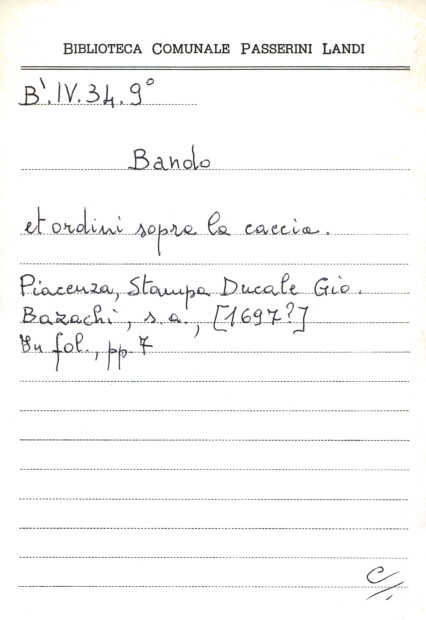 BIBLIOTECA COMUNALE PASSERINI LANDI
B`.IV.34.9°
Bando
et ordini sopra la caccia.
Piacenza, Stampa Ducale Gio.
Bazachi, s.a., [1697?]
In fol., pp. 7
C/.